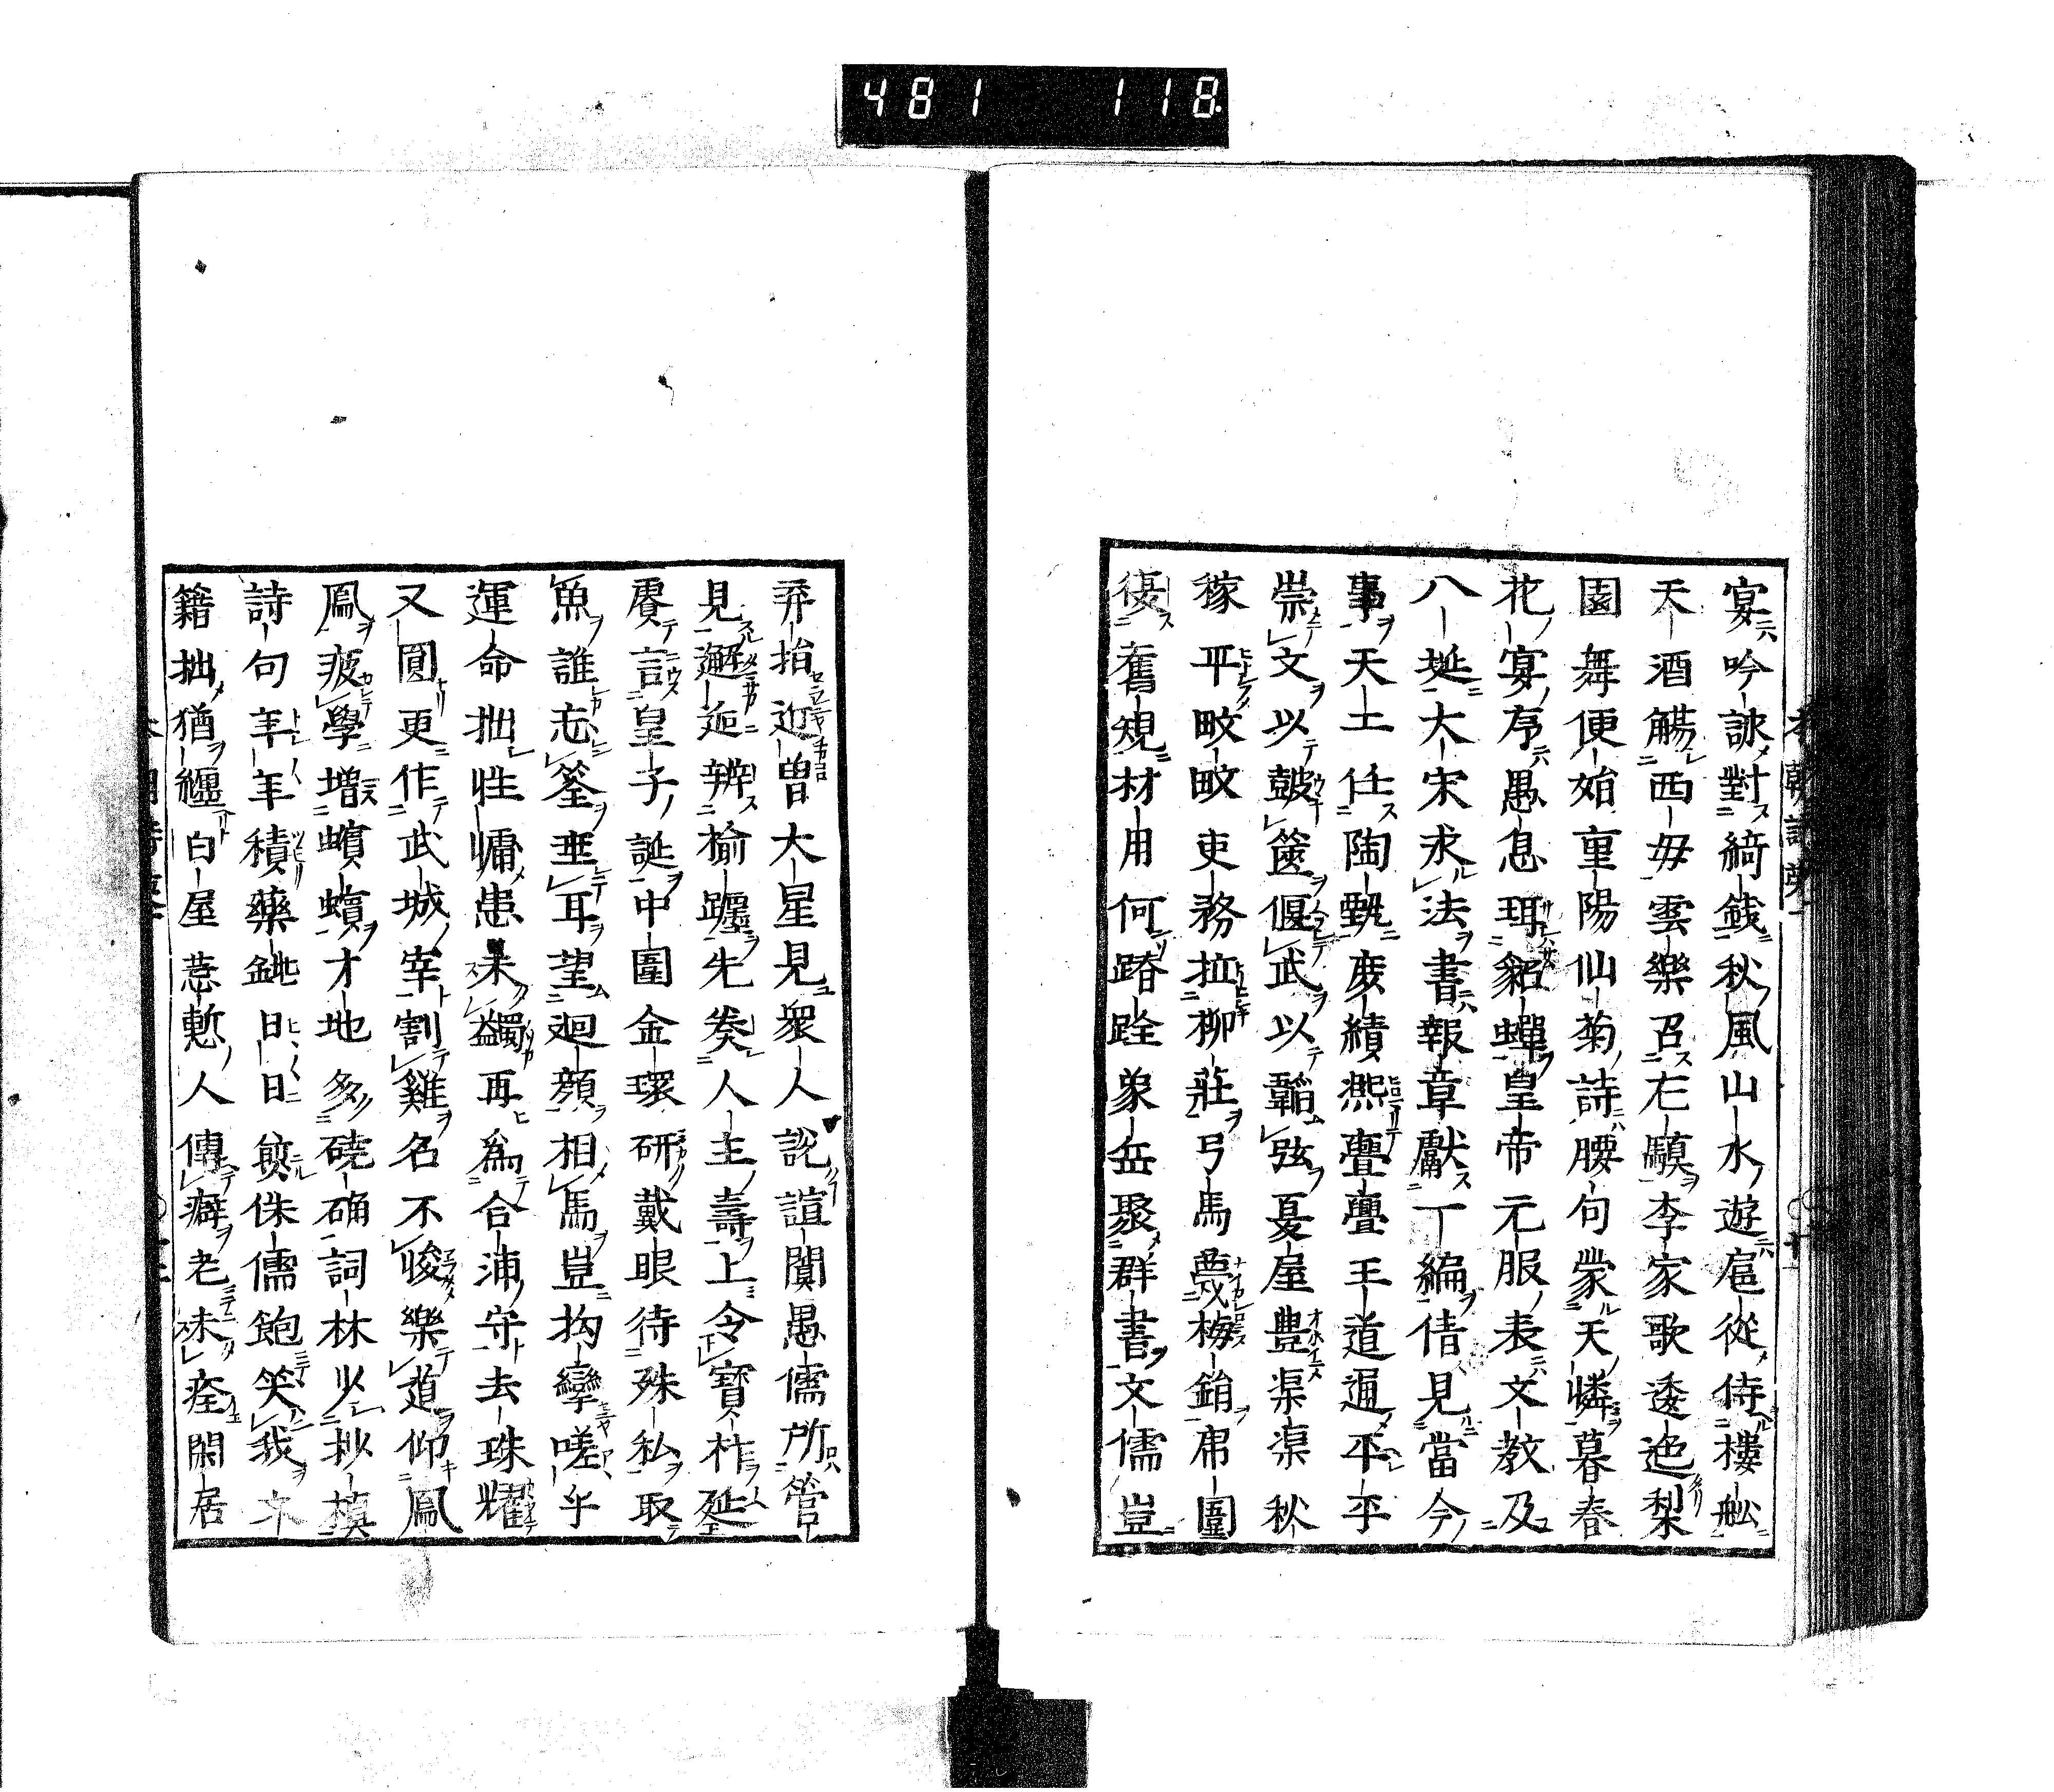 481 118
宴吟詠對綺錢秋風山水遊扈從侍樓舩
天酒觴西毋雲樂召右驥李家歌逶迤梨
園舞便始重陽仙菊詩腰句蒙天憐暮春
花宴序愚息珥貂蟬皇帝元服表文教及
八埏大宋求法書報章獻一編倩見當今
事天工任陶甄庶績熙亹亹王道遍平平
崇文以皷篋偃武以韜弦夏屋豊渠渠秋
稼平畋畋吏務拉柳莊弓馬蔑梅銷席圍
優舊規材用何踳跧象岳聚群書文儒豈
弃抬迎曽大星見衆人説諠闐愚儒所管
見邂逅辨榆躔先奏人主壽上令寶祚延
賡言皇子誕中圍金環研戴眼待殊私取
魚誰忘筌垂耳望迴顔相馬豈拘攣嗟乎
運命拙性慵患未蠲再爲合浦守去珠耀
又圓更作武城宰割雞名不悛樂道仰鳳
鳳疲學増蠙蠙才地多磽确詞林少杪槙
詩句年年積藥鈋日日煎侏儒飽笑我
籍拙猶纒白屋惹慙人傳癖老未痊閑居